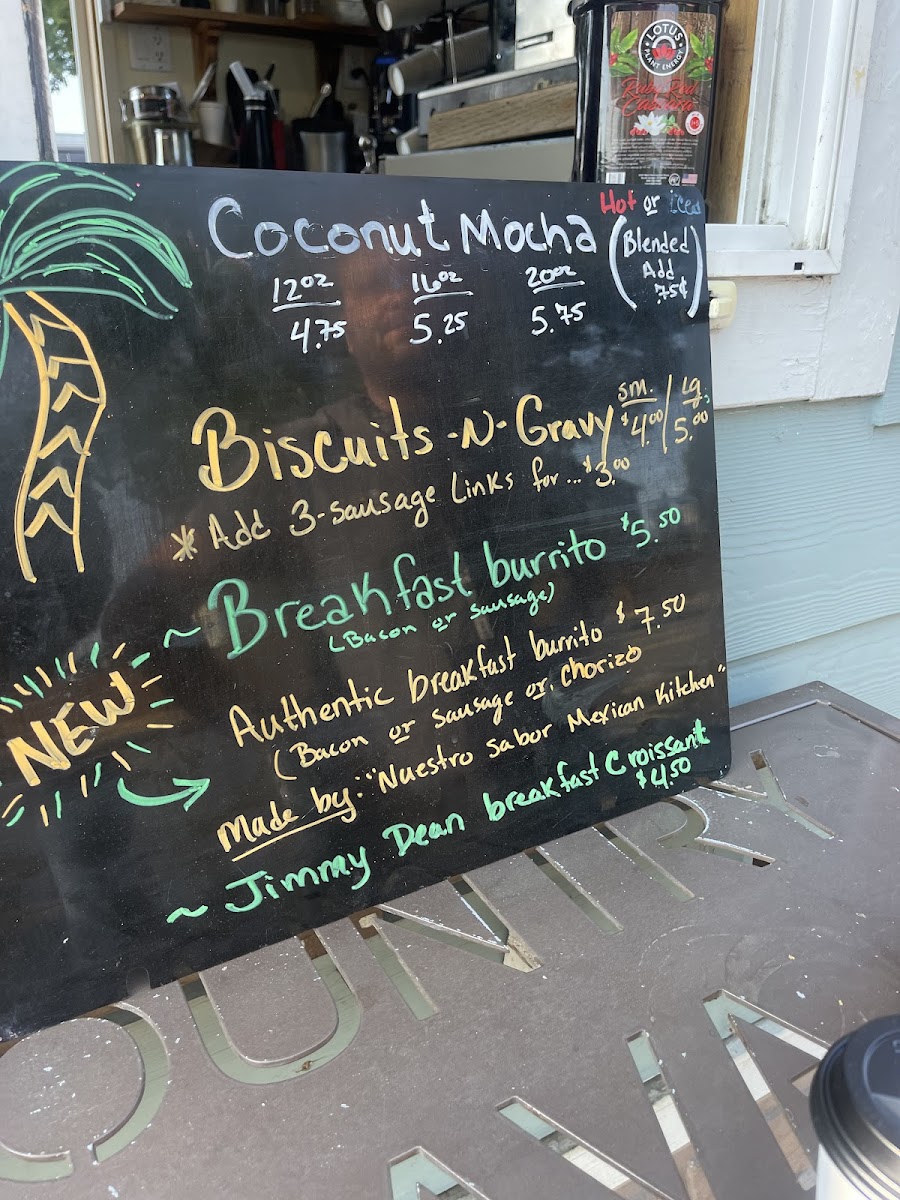 LOTUS
PLANT ENERGY
Ruby Red
Coconut Mocha
Hot or iced
(Blended
Add
.75¢)
12oz 16oz 20oz
4.75 5.25 5.75
Biscuits -N- Gravy/ sm. $4.00 / lg. 5.00
* Add 3-sausage Links for... $3.00
~ Breakfast burrito $5.50
(Bacon or sausage)
NEW
Authentic breakfast burrito $7.50
(Bacon or sausage or chorizo
Made by: "Nuestro Sabor Mexican Kitchen"
~ Jimmy Dean breakfast Croissant
$4.50
OUNTRY